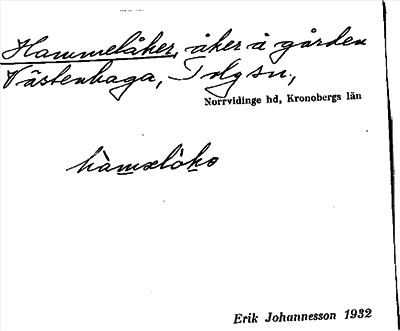 Hammelåker, åker å gården
Västenhaga, Tolg sn,
Norrvidinge hd, Kronobergs län
Erik Johannesson 1932